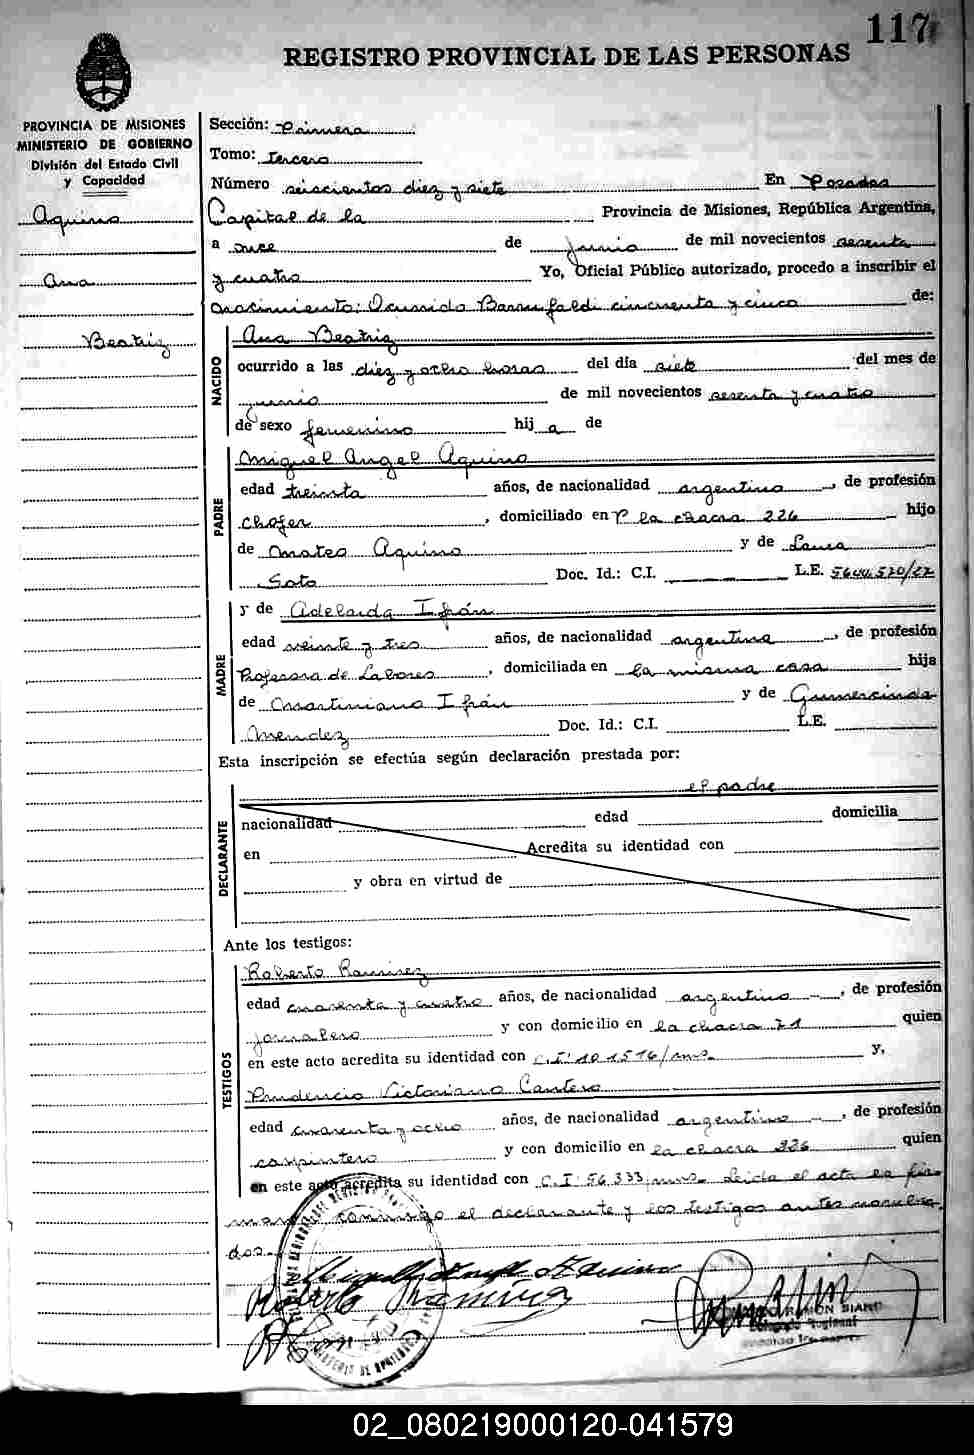 117
REGISTRO PROVINCIAL DE LAS PERSONAS
PROVINCIA DE MISIONES
MINISTERIO DE GOBIERNO
División del Estado Civil
y Capacidad
Aquino
Ana
Beatriz
Sección: Primera
Tomo: tercero
Número seiscientos diez y siete En Posadas
Capital de la Provincia de Misiones, República Argentina,
a once de junio de mil novecientos sesenta
y cuatro Yo, Oficial Público autorizado, procedo a inscribir el
nacimiento: Ocurrido Barrufaldi cincuenta y cinco de:
NACIDO
Ana Beatriz
ocurrido a las diez y ocho horas del día siete del mes de
junio de mil novecientos sesenta y cuatro
de sexo femenino hij a de
PADRE
Miguel Angel Aquino
edad treinta años, de nacionalidad argentino, de profesión
chofer, domiciliado en P la chacra 226 hijo
de Mateo Aquino y de Laura
Soto Doc. Id.: C.I. L.E. 5644.520/22
MADRE
y de Adelaida Ifrán
edad veinte y tres años, de nacionalidad argentina, de profesión
Profesora de Labores, domiciliada en la misma casa hija
de Martiniano Ifrán y de Gumercinda
Mendez Doc. Id.: C.I. L.E.
Esta inscripción se efectúa según declaración prestada por:
DECLARANTE
el padre
nacionalidad edad domicilia
en Acredita su identidad con
y obra en virtud de
Ante los testigos:
TESTIGOS
Roberto Ramirez
edad cuarenta y cuatro años, de nacionalidad argentino, de profesión
jornalero y con domicilio en la chacra 71 quien
en este acto acredita su identidad con C.I. 101516/mns. y,
Prudencio Victoriano Cantero
edad cuarenta y ocho años, de nacionalidad argentino, de profesión
carpintero y con domicilio en la chacra 226 quien
en este acto acredita su identidad con C.I. 56.333/mns. Leida el acta la fir
man conmigo el declarante y los testigos antes nombra
dos.
Miguel Angel Aquino
Roberto Ramirez
RAMON
Delegado Regional
02_080219000120-041579